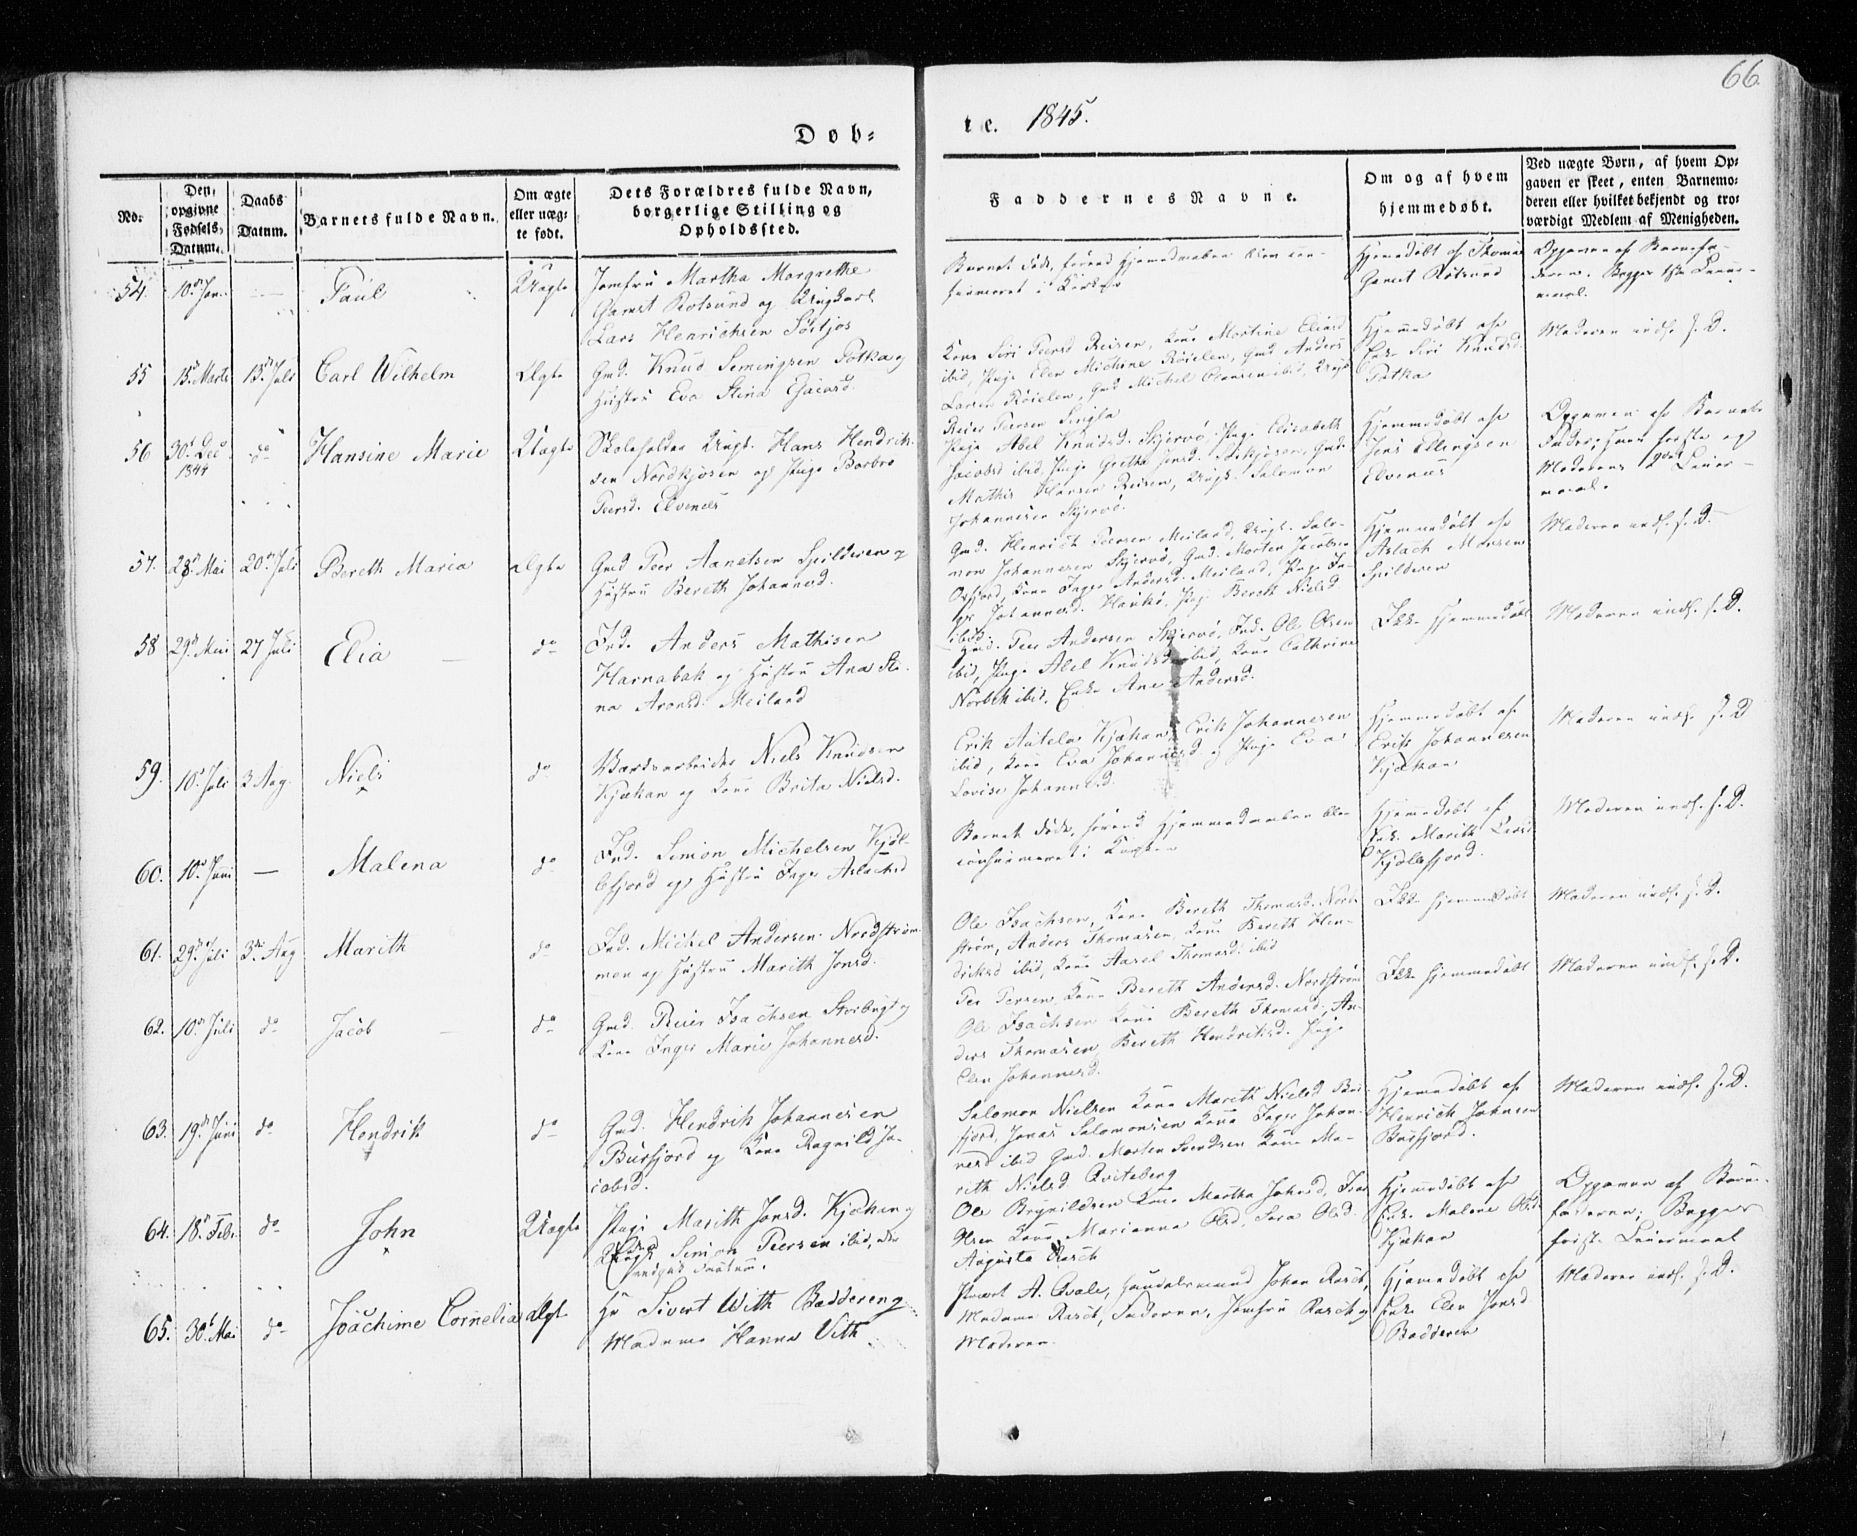 66
Døb=
te. 1845.
No.
Den opgivne Fødsels Datum.
Daabs Datum.
Barnets fulde Navn.
Om ægte eller uæg= te født.
Dets Forældres fulde Navn, borgerlige Stilling og Opholdssted.
Faddernes Navne.
Om og af hvem hjemmedøbt.
Ved uægte Børn, af hvem Op= gaven er skeet, enten Barnemo= deren eller hvilket bekjendt og tro= værdigt Medlem af Menigheden.
54. 10de Jan. — Paul Uægte
Jomfru Martha Margrethe
Gamst Rotsund og Ungkarl
Lars Henrichsen Sörkjos
Barnet døde, førend Hjemmedaaben blev con-
firmeret i Kirken
Hjemmedøbt af Thomas
Gamst Rotsund
Opgaven af Barnefa-
deren. Begges 1ste Leier-
maal.
55 15de Marts 13de Juli Carl Wilhelm Ægte
Gmd. Knud Semingsen Potka og
Hustru Eva Stina Esaiasd.
Kone Siri Peersd Reisen, Kone Martine Eliasd
ibid, Pige Elen Michine Röielen, Gmd Anders
Larsen Röielen, Gmd Michel Olausen ibid, Ungk
Reier Iversen
Hjemmedøbt af
Enke Siri Knudsd
Potka
Moderen indl. f. D.
56 30te Dec 1844 do Hansine Marie Uægte
Skoleholder Ungk. Hans Hendrik-
sen Nordkjosen og Pige Barbro
Peersd. Elvenæs
Pige Abel Knudsd. Skjervö, Pige Elisabeth
Jacobsd ibid, Pige Grethe Jensd. Sörkjosen, Gmd.
Mathis Hansen Reisen, Ungk. Salomon
Johannesen Skjervö.
Hjemmedøbt af
Jens Ellingsen
Elvenæs
Opgaven af Barnets
Fader; hans første og
Moderens 2det Leier-
maal.
57. 28de Mai 20de Juli Bereth Maria Ægte
Gmd Peer Aanetsen Spilderen og
Hustru Bereth Johannesd.
Gmd. Henrich Peersen Meiland, Ungk. Salo-
mon Johannesen Skjervö, Gmd. Morten Jacobsen
Oxfjord, Kone Inger Andersd. Meiland, Pige In-
ger Johannesd. Haukö, Pige Bereth Nielsd
ibid.
Hjemmedøbt af
Aslach Monsen
Spilderen
Moderen indl. f. D.
58 29de Mai 27 Juli Elia — do
Ind. Anders Mathisen
Havnabak og Hustru Ana Sti-
na Aronsd. Meiland
Gmd. Peer Andersen Skjervö, Ind. Ole Olsen
ibid, Pige Abel Knudsd ibid, Kone Cathrine
Norbek ibid, Enke Ane Andersd.
Ikke hjemmedøbt
Moderen indl. f. D.
59. 10de Juli 3 Aug. Niels do
Værksarbeider Niels Knudsen
Kjækan og Kone Brita Nielsd.
Erik Antelas Kjækan, Erik Johannesen
ibid, Kone Eva Johannesd og Pige Eva
Lovise Johannesd.
Hjemmedøbt af
Erik Johannesen
Kjækan
Moderen indl. f. D
60. 10de Juni — Malena do
Ind. Simon Michelsen Kjöl-
lefjord og Hustru Inger Aslachsd
Barnet døde, førend Hjemmedaaben blev
confirmeret i Kirken
Hjemmedøbt af
Enk. Marith Larsd
Kjöllefjord.
Moderen indl. f. D.
61. 29de Juli 3de Aug Marith do
Ind. Michel Andersen Nordström-
men og Hustru Marith Jonsd.
Ole Isachsen, Kone Bereth Thomasd. Nord-
ström, Anders Thomasen, Kone Bereth Hen-
driksd ibid, Kone Aarel Thomasd. ibid
Ikke hjemmedøbt
Moderen indl. f. D.
62. 10de Juli do Jacob — do
Gmd. Reier Isachsen Storbugt og
Kone Inger Marie Johannesd.
Peer Persen, Kone Bereth Andersd. Nordström
Ole Isachsen Kone Bereth Thomasd, An-
ders Thomasen, Bereth Hendriksd. Pige
Elen Johannesd.
Ikke hjemmedøbt
Moderen indl. f. D.
63. 19de Juni do Hendrik do
Gmd. Hendrik Johannesen
Bursfjord og Kone Ragnild Ja-
cobsd.
Salomon Nielsen Kone Marith Nielsd Bur-
fjord, Jonas Salomonsen Kone Inger Johan-
nesd ibid Gmd. Morten Svendsen Kone Ma-
rith Nielsd Qviteberg
Hjemmedøbt af
Henrich Johnsen
Bursfjord.
Moderen indl. f. D.
64. 18de Febr. do John Uægte
Pige Marith Jonsd. Kjækan og
Ungk Simon Peersen ibid,
Ole Brynildsen Kone Martha Johnsd, Isac
Olsen Kone Marianna Olsd, Sara Olsd.
Augusta Rasch
Hjemmedøbt af
Enk. Malene Olsd
Kjækan
Opgaven af Barne-
faderen; Begges
første Leiermaal
65. 30te Mai do Joachime Cornelia Ægte
Hr Sivert With Badderen og
Madame Hanna With.
Sivert A. Qvale, Handelsmand Johan Rasch,
Madame Rasch, Faderen, Jomfru Rasch og
Moderen.
Hjemmedøbt af
Enk. Elen Jonsd
Badderen
Moderen indl. f. D.